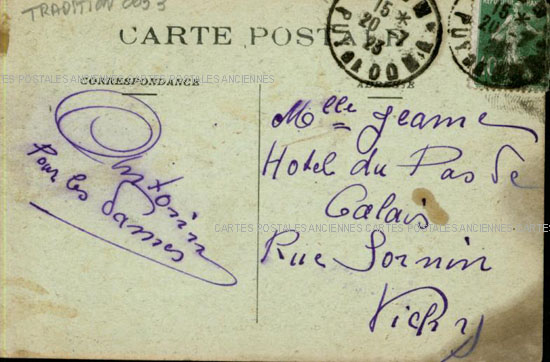 TRADITION
CARTE POSTALE
CORRESPONDANCE
ADRESSE
CARTES POSTALES ANCIENNES
CARTES POSTALES ANCIENNES
Antonin
Pour les Dames
Mlle Jeanne
Hotel du Pas de
Calais
CARTES POSTALES ANCIENNES
CARTES POSTALES ANCIENNES
Rue Sornin
Vichy
15 *
20 - 7
23
PUY DE DOME